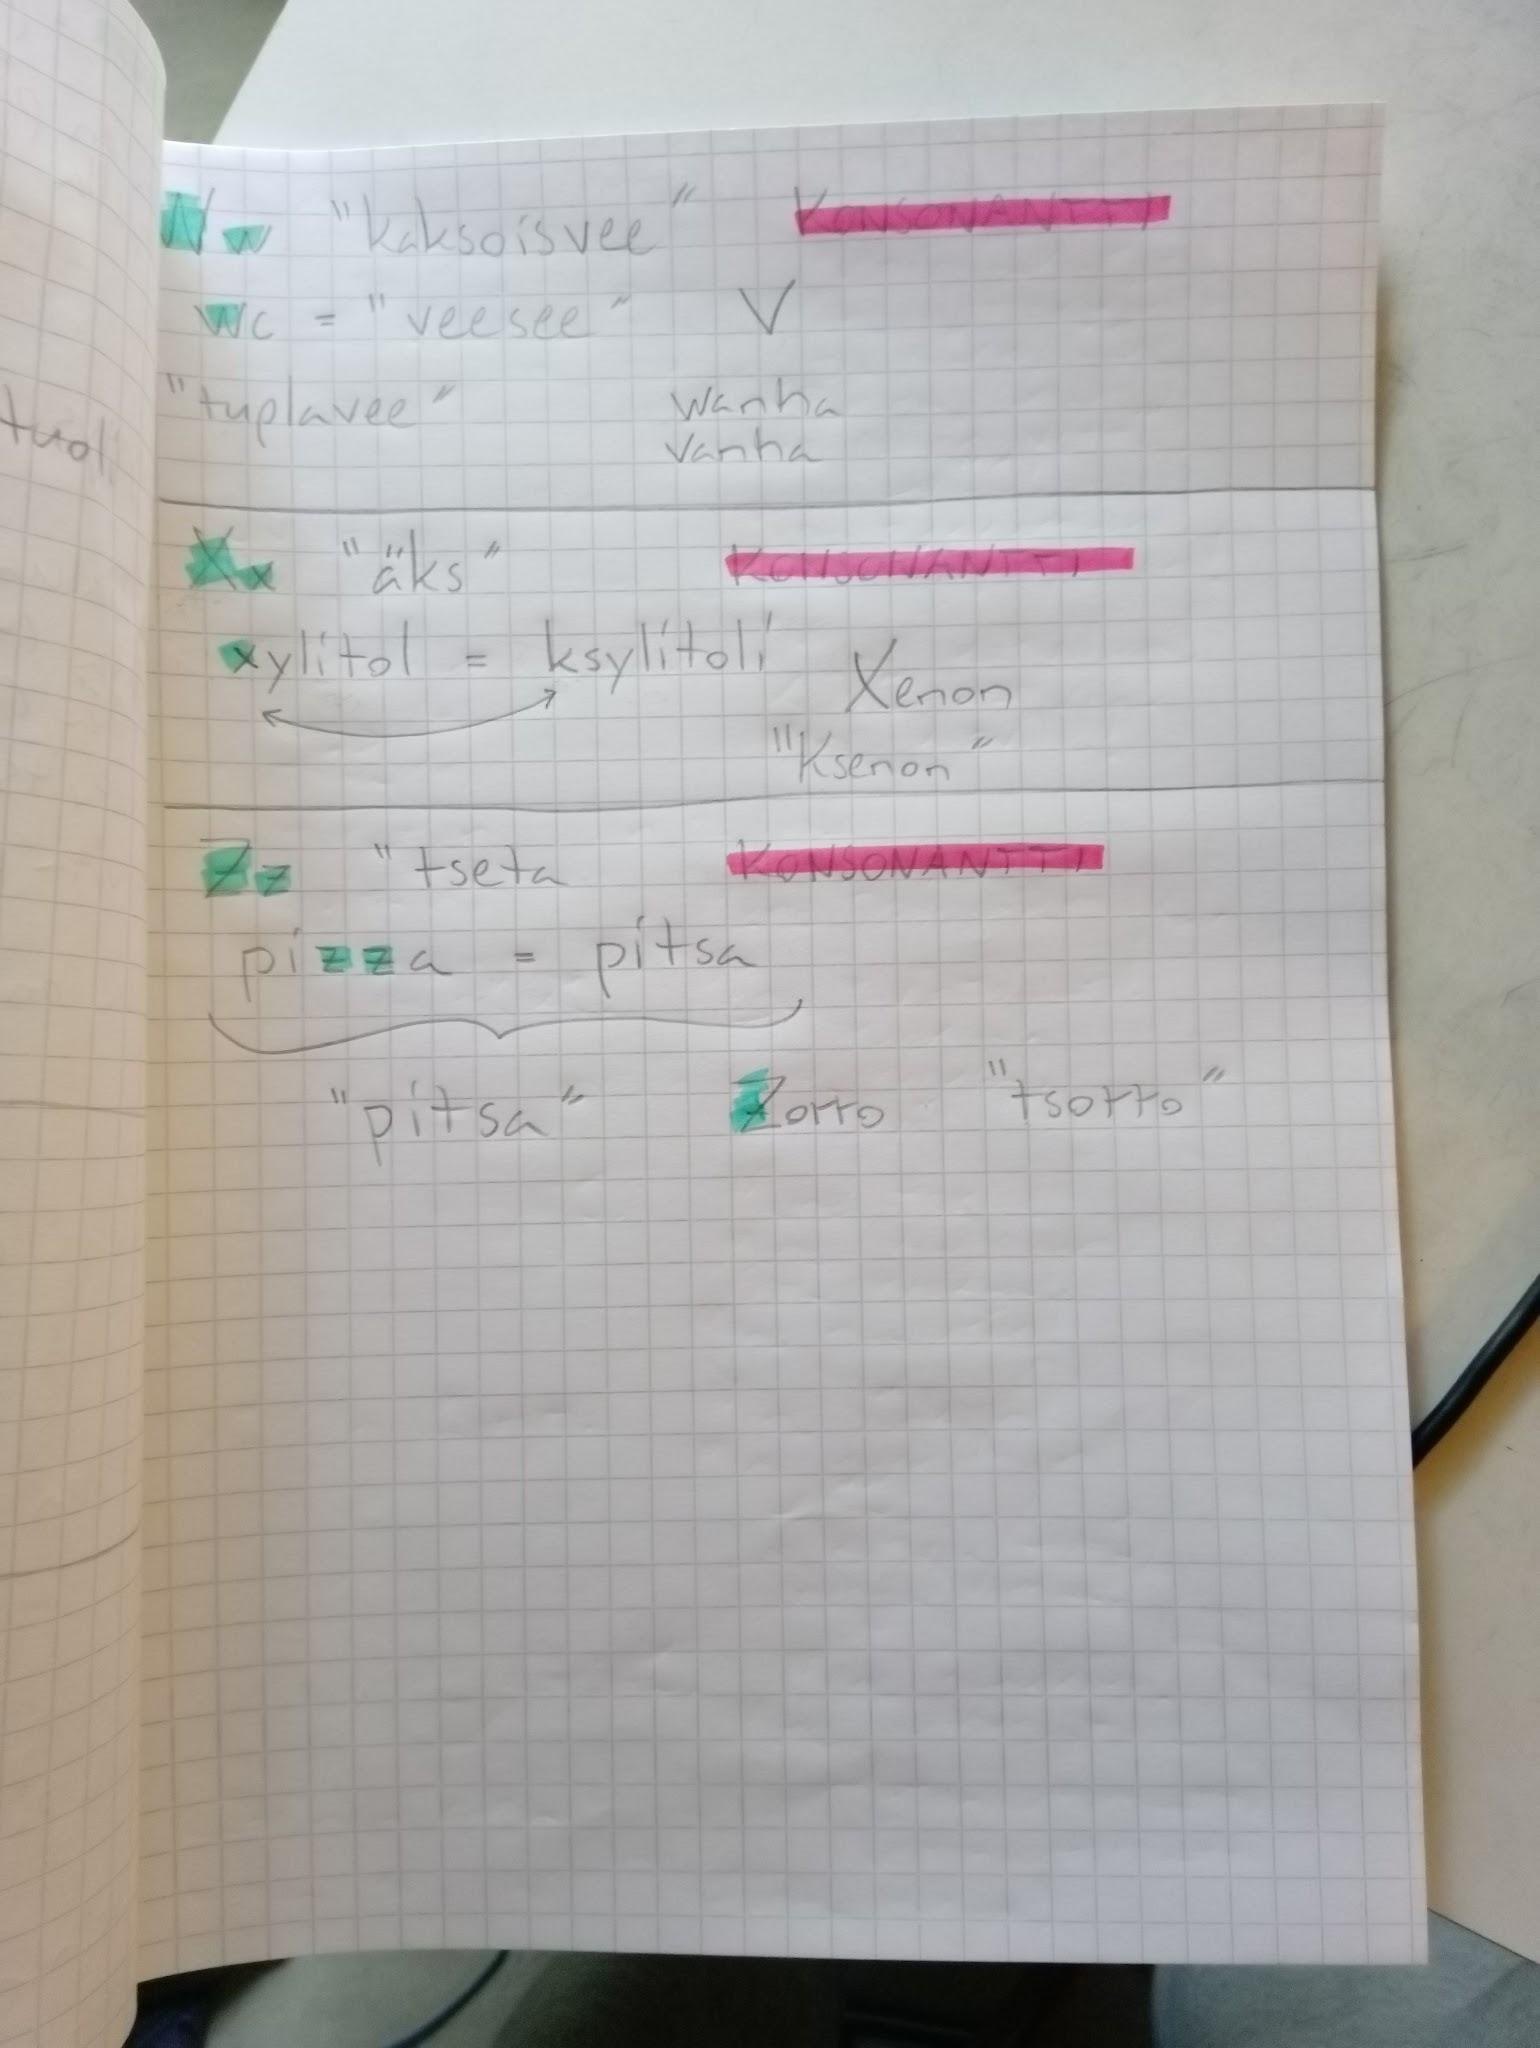 Ww "kaksoisvee" KONSONANTTI
wc = "veesee" V
"tuplavee" wanha
vanha
tuoli
Xx "äks" KONSONANTTI
xylitol = ksylitoli Xenon
"Ksenon"
Zz "tseta KONSONANTTI
pizza = pitsa
"pitsa" Zorro "tsorro"